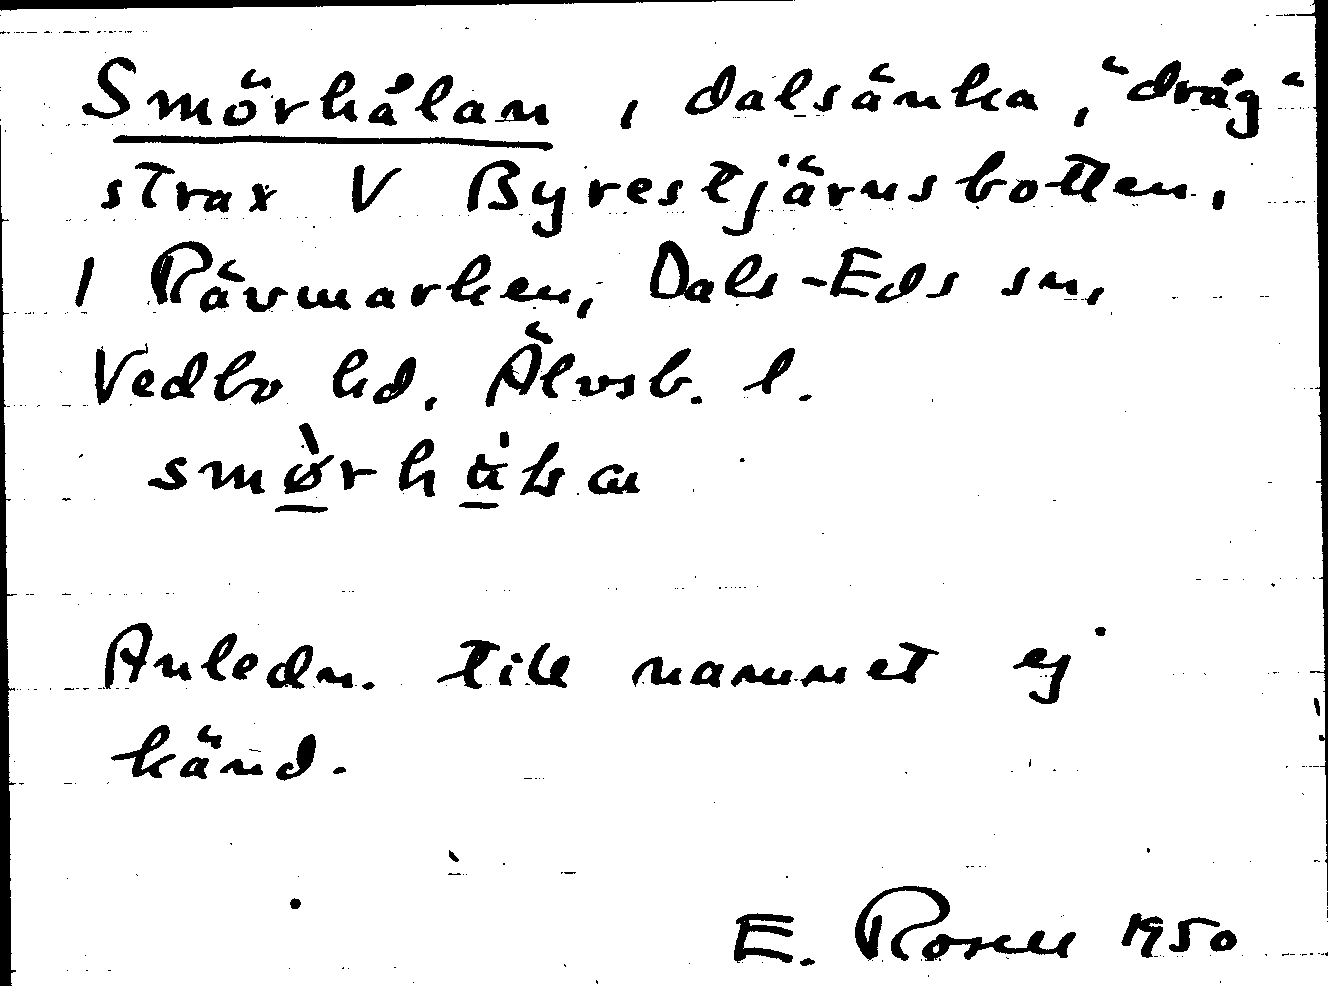 Smörhålan, dalsänka, "dråg"
strax V Byrestjärnsbotten,
i Rävmarken, Dals-Eds sn,
Vedbo hd. Älvsb. l.

Anledn. till namnet ej
känd.
E. Rosell 1950